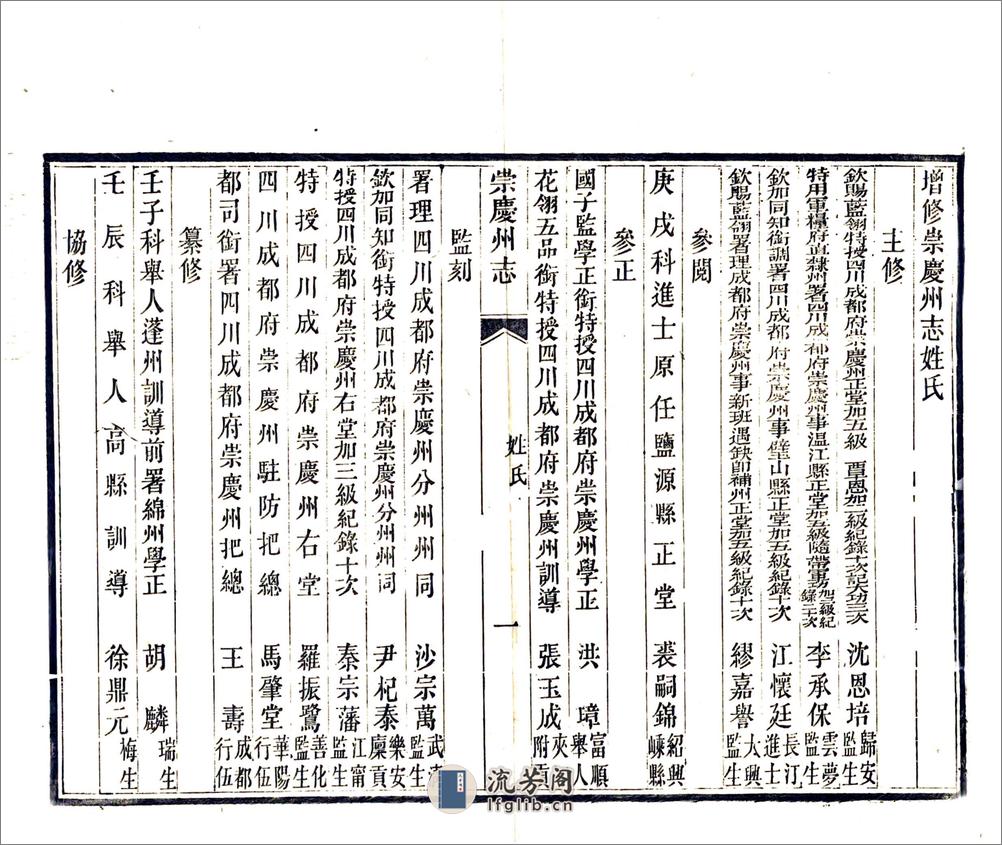 增修崇慶州志姓氏
主修
欽賜藍翎特授四川成都府崇慶州正堂加五級 覃恩加二級紀錄十次記大功三次 沈恩培 歸安監生
特用軍糧府直隸州署四川成都府崇慶州事溫江縣正堂加五級隨帶軍功加二級紀錄二十次 李承保 雲夢監生
欽加同知銜調署四川成都府崇慶州事璧山縣正堂加五級紀錄十次 江懷廷 長汀進士
欽賜藍翎署理成都府崇慶州事新班遇缺即補州正堂加五級紀錄十次 繆嘉譽 大興監生
參閱
庚戌科進士原任鹽源縣正堂 裘嗣錦 紹興嵊縣
參正
國子監學正銜特授四川成都府崇慶州學正 洪璋 富順舉人
花翎五品銜特授四川成都府崇慶州訓導 張玉成 夾江附貢
崇慶州志 姓氏 一
監刻
署理四川成都府崇慶州分州州同 沙宗萬 武監生
欽加同知銜特授四川成都府崇慶州分州州同 尹杞泰 樂安廩貢
特授四川成都府崇慶州右堂加三級紀錄十次 秦宗藩 江甯監生
特授四川成都府崇慶州右堂 羅振鷺 善化監生
四川成都府崇慶州駐防把總 馬肇堂 華陽行伍
都司銜署四川成都府崇慶州把總 王壽 成都行伍
纂修
壬子科舉人蓬州訓導前署綿州學正 胡麟 瑞生
壬辰科舉人高縣訓導 徐鼎元 梅生
協修
流芳阁
lfglib.cn